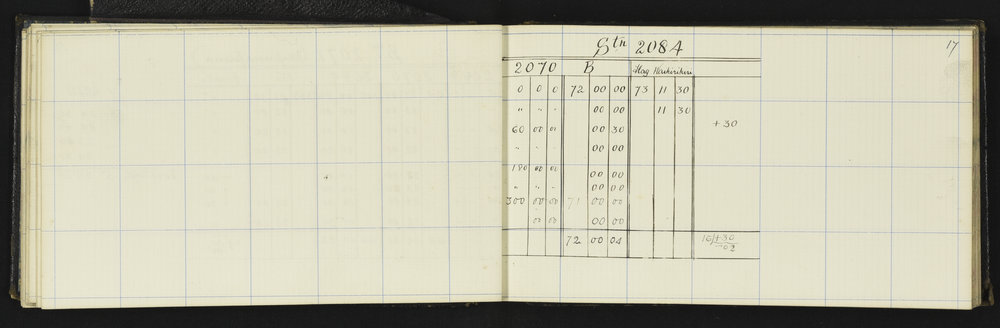 17
Stn 2084
2070 B Flag
0 0 0 72 00 00 73 11 30
" " " 00 00 11 30
+30
60 00 00 00 30
" " " 00 00
180 00 00 00 00
" " " 00 00
300 00 00 71 00 00
00 00 00 00
72 00 04
16/+30
02